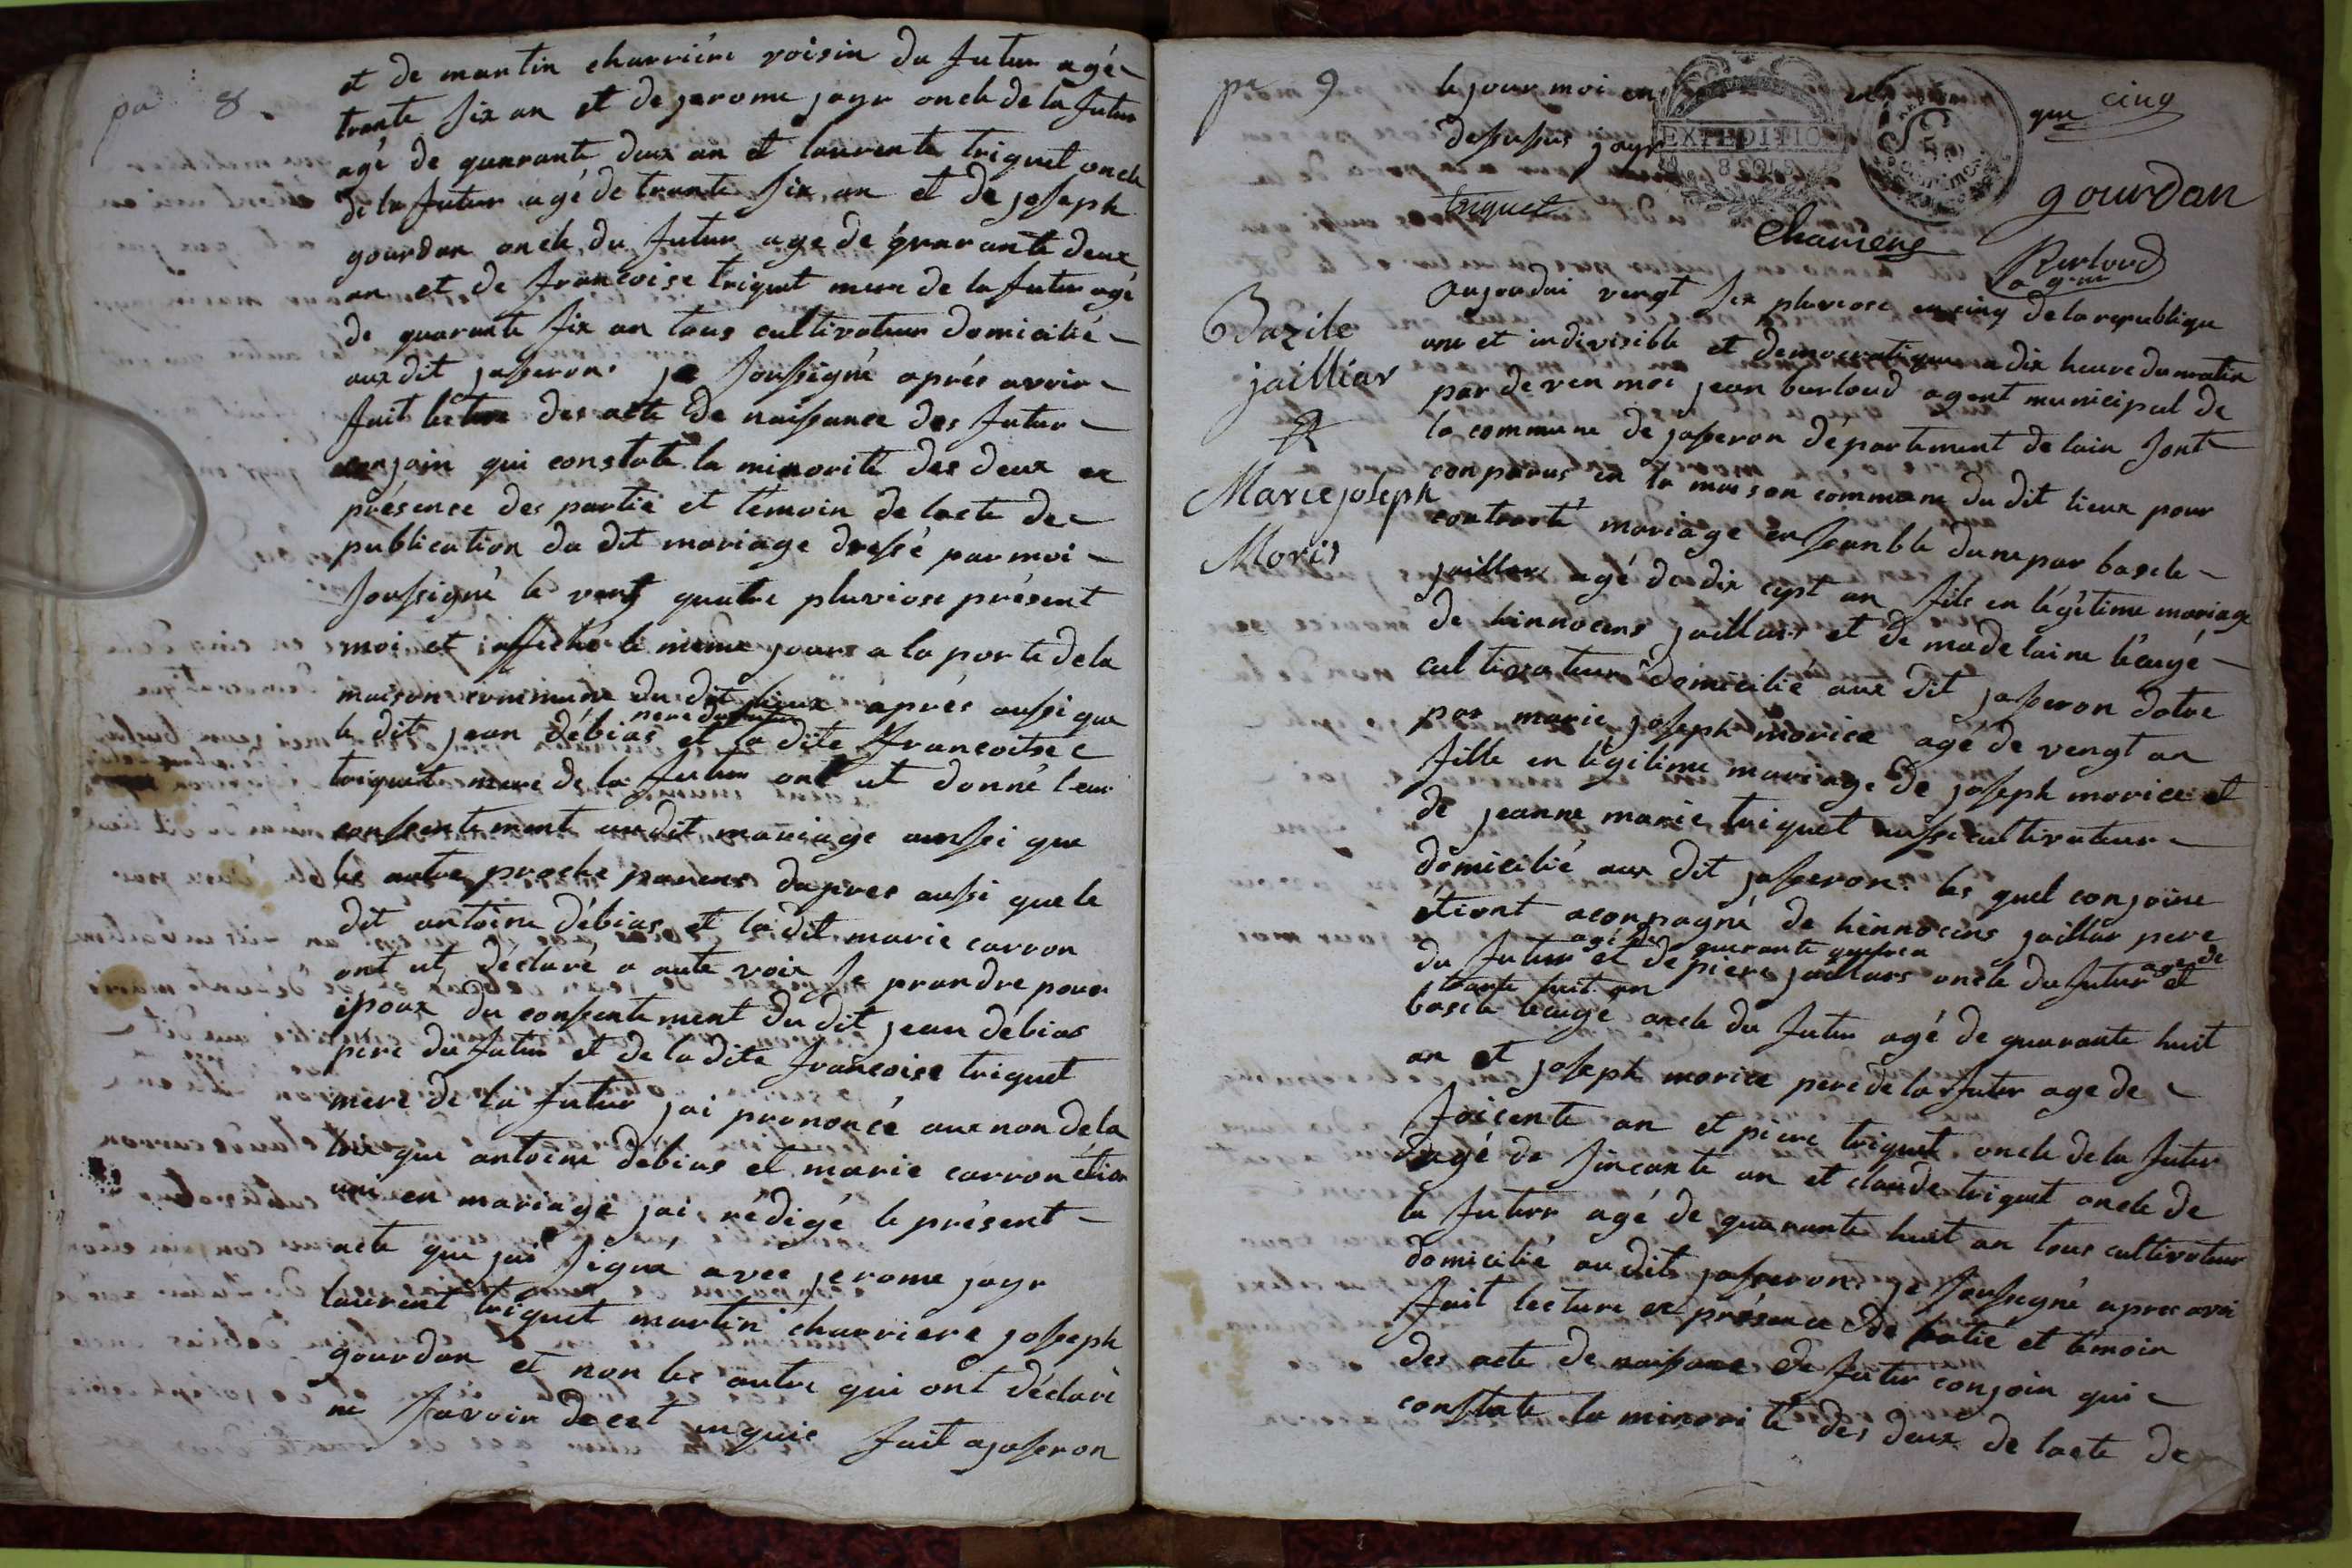 pa 8
et de martin charriére voisin du futur agé
trante six an et de jerome jayr oncle de la futur
agé de quarante deux an et laurente triquet oncle
de la futur agé de trante six an et de joseph
gourdan oncle du futur age de quarante deux
an et de francoise triquet mere de la futur agé
de quarante six an tous cultivateur domicilié
aux dit jasseron je soussigné aprés avoir
fait lecture des acte de naissance des futur
conjoin qui constate la minorité des deux en
présence des partie et témoin de lacte de
publication du dit mariage dressé par moi
soussigné le vent quatre pluviose présent
moi et affiché le méme jour a la porte de la
maison commune du dit lieux aprés aussi que
le dit jean débias pere du futur et la dite francoise
triquet mere de la futur ont ut donné leur
consentement audit mariage aussi que
les autre proche parens dapres aussi que le
dit antoine débias et la dit marie carron
ont ut déclaré a aute voix se prandre pour
époux du consentement du dit jean débias
pere du futur et de la dite francoise triquet
mere de la futur jai prononcé aux non de la
loix que antoine débias et marie carron étion
uni en mariage jai rédigé le présent
acte que jai signé avec jerome jayr
laurent triquet martin charriere joseph
gourdan et non les autre qui ont déclaré
ne savoir de cet enquie fait a jasseron
pa 9
le jour moi en que cinq
EXPEDITION
8 SOLS
dessusus jayr
triquet
gourdan
Chariere
Burloud
agent
Bazile
jailliar
&
Marie joseph
Moris
Aujourdui vengt six pluviose en cinq de la republique
une et indivisible et democratique a dix heure du matin
par deven moi jean burloud agent municipal de
la commune de jasseron département de lain sont
conparus en la maison commune du dit lieux pour
contracté mariage ensanble dune par basile
jaillar agé de dix cept an fils en légitime mariage
de hinnocens jaillar et de madelaine léaugé
cultivateur domicilié aux dit jasseron dotre
par marie joseph morice agé de vengt an
fille en légitime mariage de joseph morice et
de jeanne marie triquet aussi cultivateur
domicilié aux dit jasseron les quel conjoins
étiont aconpagné de hinnocens jaillar pere
du futur agé de quarante et de piere jaillars oncle du futur age de
trante huit an et
basile léaugé oncle du futur agé de quarante huit
an et joseph morice pere de la futur age de
soicente an et piere triquet oncle de la futur
dagé de sincante an et claude triquet oncle de
la futur agé de quarante huit an tous cultivateur
domicilié audit jasseron je soussigné apres avoi
fait lecture en présence de partie et témoin
des acte de naissance de futur conjoin qui
constate la minorité des deux de lacte de